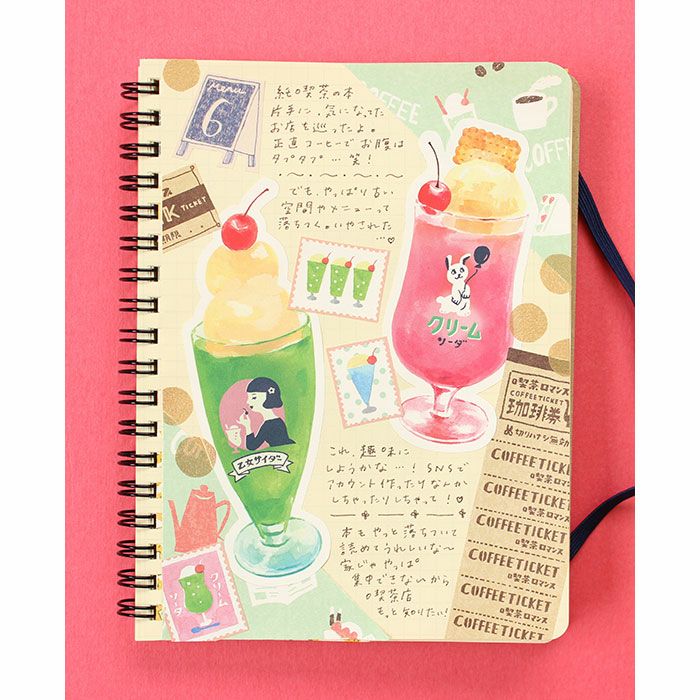 menu
6
純喫茶の本
片手に、気になってた
お店を巡ったよ。
正直コーヒーでお腹は
タプタプ…笑！
でも、やっぱり古い
空間やメニューって
落ちつく。いやされた
…♡
COFFEE
COFF
TICKET
クリーム
ソーダ
乙女サイダー
これ、趣味に
しようかな…！SNSで
アカウント作ったりなんか
しちゃったりしちゃって！♡
本もやっと落ちついて
読めてうれしいな〜
家じゃやっぱ
集中できないから
喫茶店
もっと知りたい！
クリーム
ソーダ
喫茶ロマンス
COFFEETICKET
珈琲券
切りハナシ無効
COFFEETICKET
喫茶ロマンス
COFFEETICKET
喫茶ロマンス
COFFEETICKET
喫茶ロマンス
COFFEETICKET
喫茶ロマンス
COFFEETICKET
喫茶ロマンス
COFFEETICKET